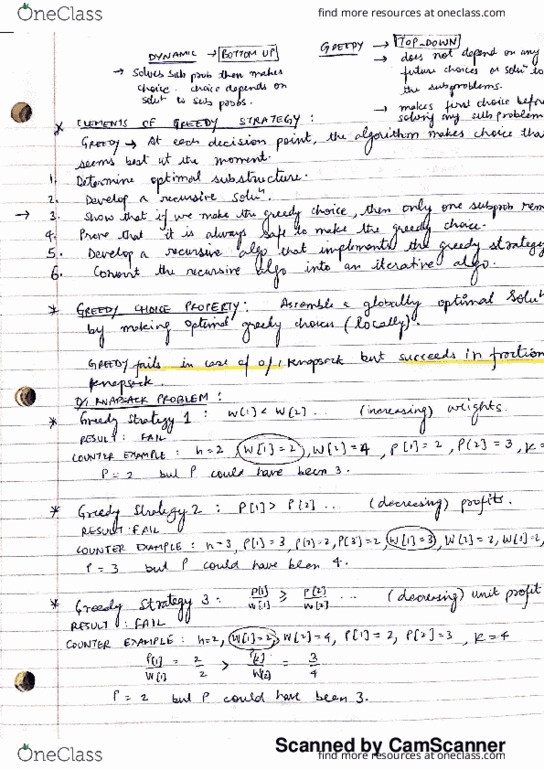 OneClass
find more resources at oneclass.com
DYNAMIC → BOTTOM UP
→ solves sub prob then makes
choice. choice depends on
soluⁿ to sub probs.
GREEDY → TOP-DOWN
→ does not depend on any
future choices or soluⁿ to
the subproblems.
→ makes first choice before
solving any sub problem
* ELEMENTS OF GREEDY STRATEGY :
GREEDY → At each decision point, the algorithm makes choice tha
seems best at the moment.
1. Determine optimal substructure.
2. Develop a recursive soluⁿ.
→ 3. Show that if we make the greedy choice, then only one subprob rem
4. Prove that it is always safe to make the greedy choice.
5. Develop a recursive algo that implements the greedy strategy
6. Convert the recursive algo into an iterative algo.
* GREEDY CHOICE PROPERTY : Assemble a globally optimal soluⁿ
by making optimal greedy choices (locally).
GREEDY fails in case of 0/1 knapsack but succeeds in fraction
knapsack.
0/1 KNAPSACK PROBLEM :
* Greedy Strategy 1 : W[1] < W[2] ... (increasing) weights.
RESULT : FAIL
COUNTER EXAMPLE : n=2, W[1]=2, W[2]=4, P[1]=2, P[2]=3, K=
P=2 but P could have been 3.
* Greedy Strategy 2 : P[1] > P[2] ... (decreasing) profits.
RESULT : FAIL
COUNTER EXAMPLE : n=3, P[1]=3, P[2]=2, P[3]=2, W[1]=3, W[2]=2, W[1]=2,
P=3 but P could have been 4.
* Greedy Strategy 3 : P[1]/W[1] ≥ P[2]/W[2] ... (decreasing) unit profit
RESULT : FAIL
COUNTER EXAMPLE : n=2, W[1]=2, W[2]=4, P[1]=2, P[2]=3, K=4
P[1]/W[1] = 2/2 > P[2]/W[2] = 3/4
P=2 but P could have been 3.
Scanned by CamScanner
OneClass
find more resources at oneclass.com